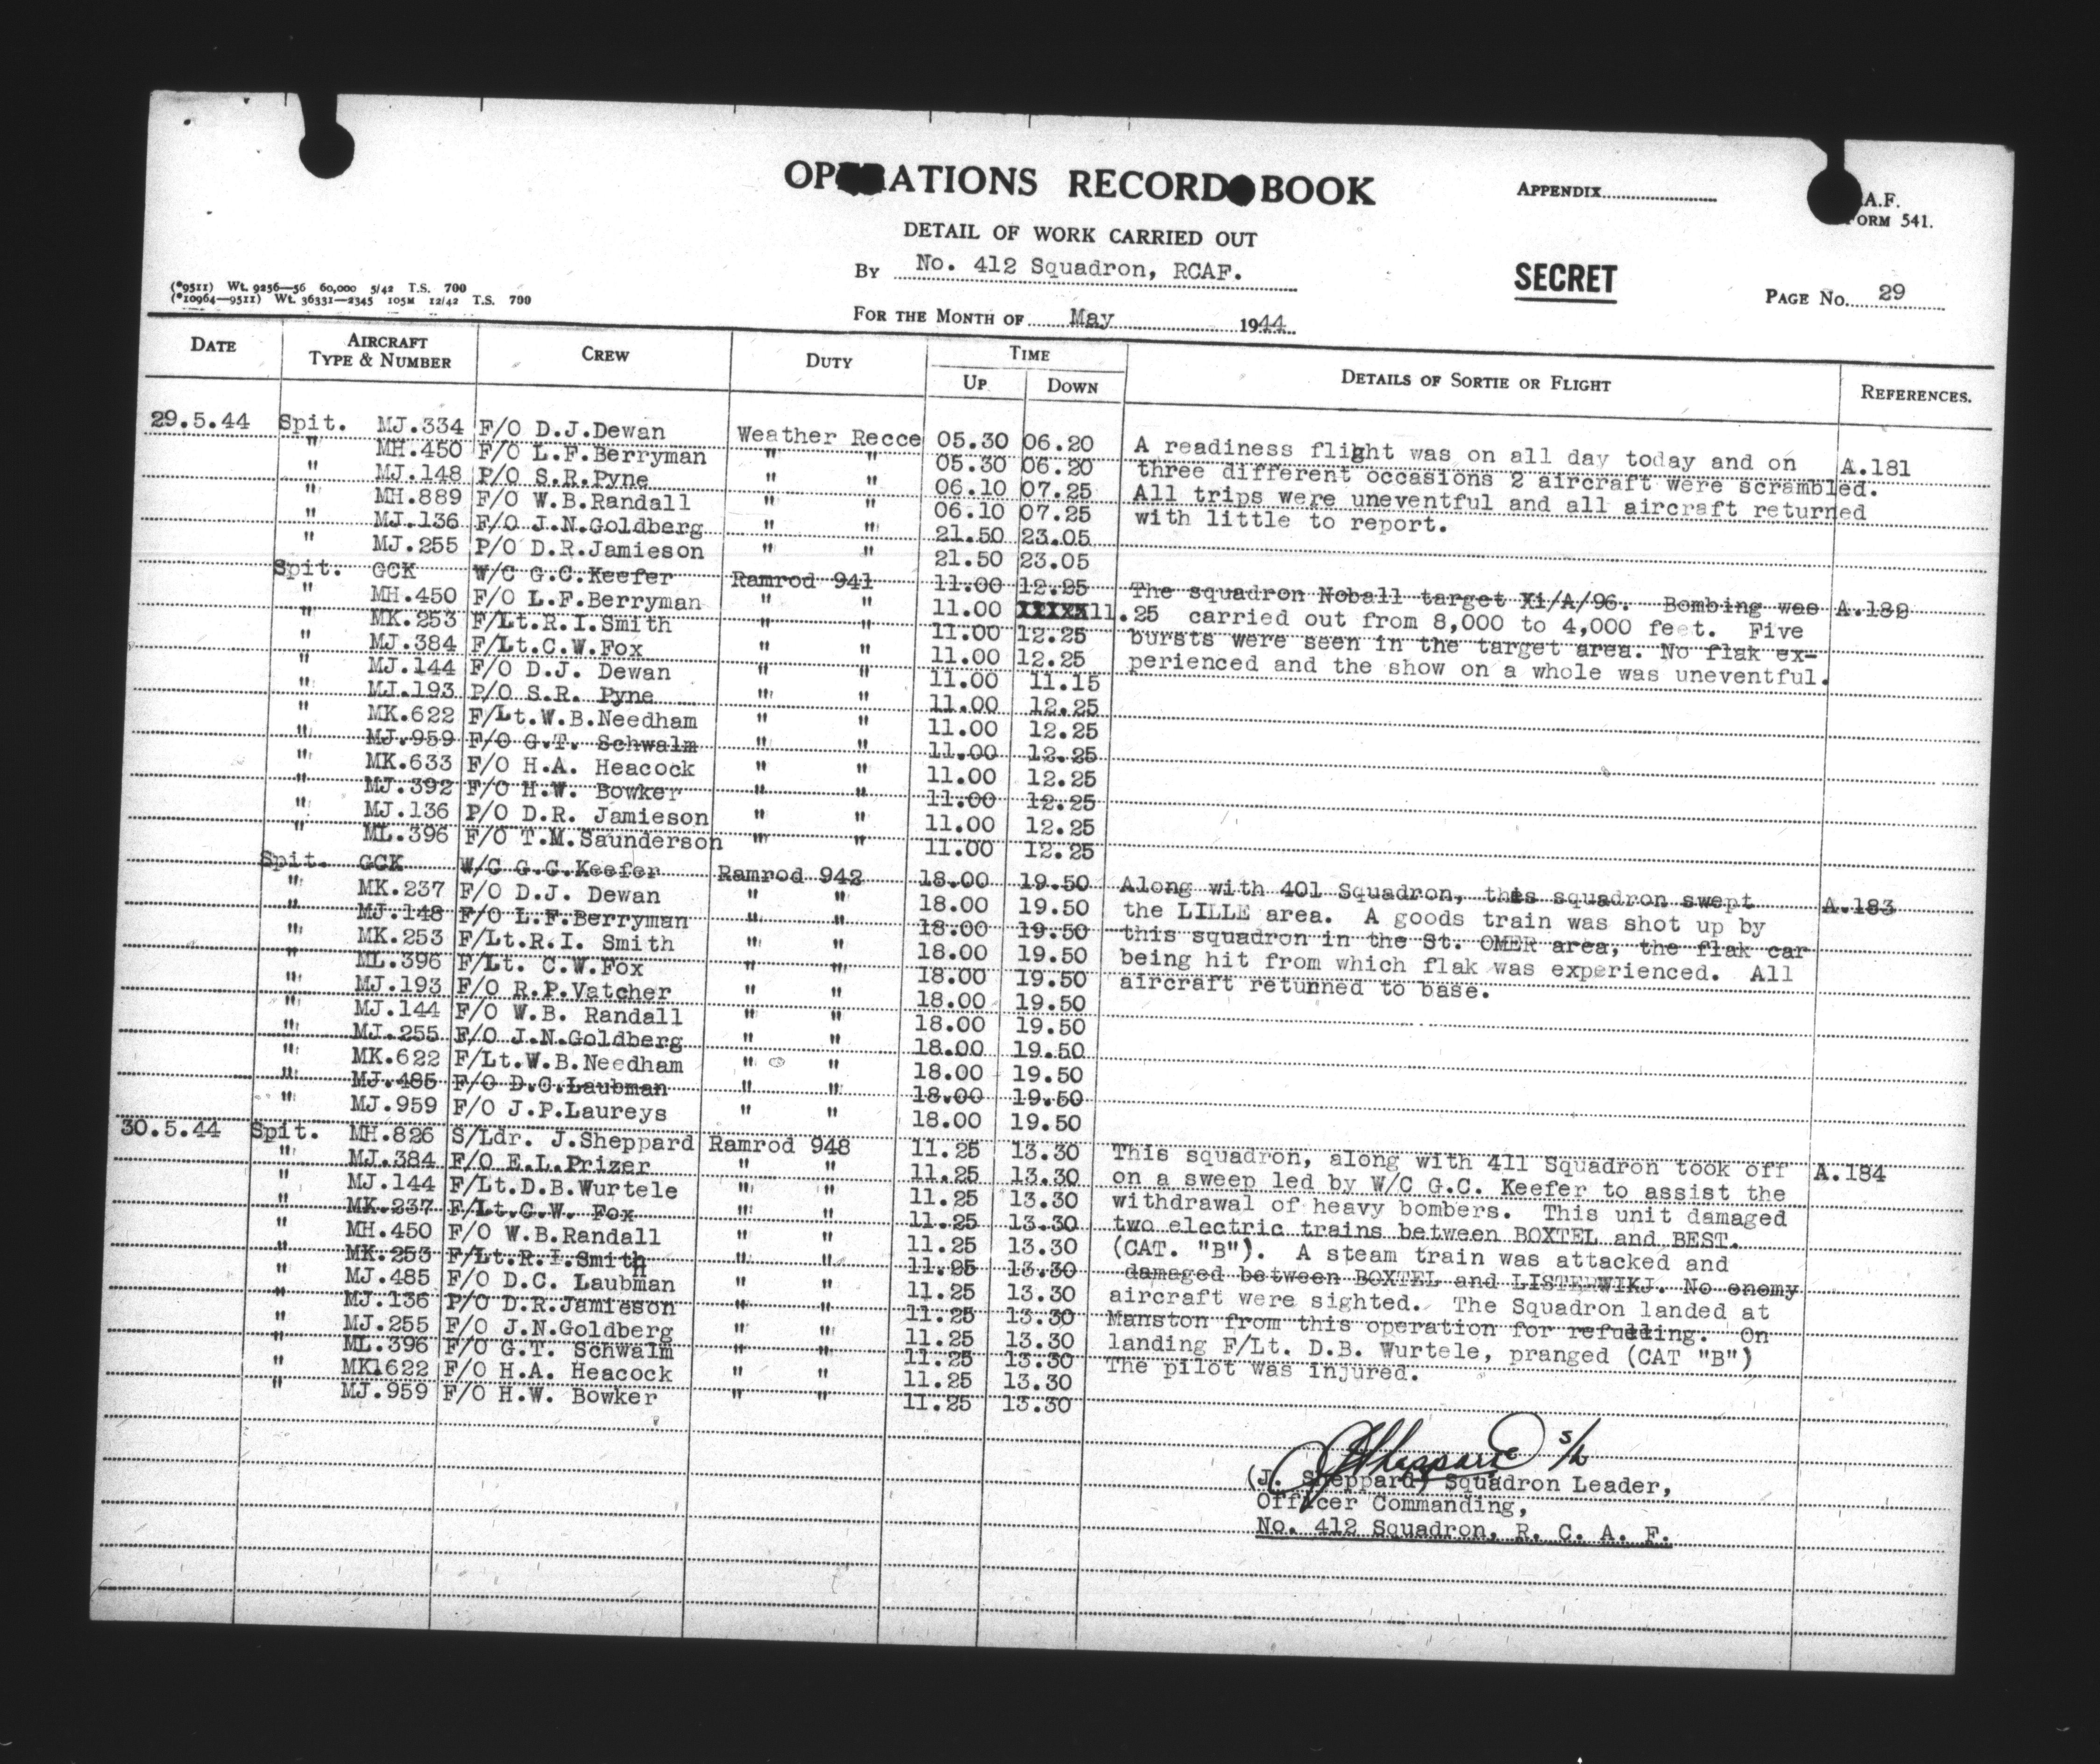 OPERATIONS RECORD BOOK
APPENDIX
R.A.F. FORM 541.
DETAIL OF WORK CARRIED OUT
By No. 412 Squadron, RCAF.
SECRET
PAGE No. 29
(*9511) Wt. 9256—56 60,000 5/42 T.S. 700
(*10964—9511) Wt. 36331—2345 105M 12/42 T.S. 700
FOR THE MONTH OF May 1944
DATE AIRCRAFT TYPE & NUMBER CREW DUTY TIME UP DOWN DETAILS OF SORTIE OR FLIGHT REFERENCES.
29.5.44 Spit. MJ.334 F/O D.J.Dewan Weather Recce 05.30 06.20 A readiness flight was on all day today and on A.181
" MH.450 F/O L.F.Berryman " " 05.30 06.20 three different occasions 2 aircraft were scrambled.
" MJ.148 P/O S.R.Pyne " " 06.10 07.25 All trips were uneventful and all aircraft returned
" MH.889 F/O W.B.Randall " " 06.10 07.25 with little to report.
" MJ.136 F/O J.N.Goldberg " " 21.50 23.05
" MJ.255 P/O D.R.Jamieson " " 21.50 23.05
Spit. GCK W/C G.C.Keefer Ramrod 941 11.00 12.25 The squadron Noball target XI/A/96. Bombing was A.182
" MH.450 F/O L.F.Berryman " " 11.00 XXXXX11.25 carried out from 8,000 to 4,000 feet. Five
" MK.253 F/Lt.R.I.Smith " " 11.00 12.25 bursts were seen in the target area. No flak ex-
" MJ.384 F/Lt.C.W.Fox " " 11.00 12.25 perienced and the show on a whole was uneventful.
" MJ.144 F/O D.J. Dewan " " 11.00 11.15
" MJ.193 P/O S.R. Pyne " " 11.00 12.25
" MK.622 F/Lt.W.B.Needham " " 11.00 12.25
" MJ.959 F/O G.T. Schwalm " " 11.00 12.25
" MK.633 F/O H.A. Heacock " " 11.00 12.25
" MJ.392 F/O H.W. Bowker " " 11.00 12.25
" MJ.136 P/O D.R. Jamieson " " 11.00 12.25
" ML.396 F/O T.M.Saunderson " " 11.00 12.25
Spit. GCK W/C G.C.Keefer Ramrod 942 18.00 19.50 Along with 401 Squadron, this squadron swept A.183
" MK.237 F/O D.J. Dewan " " 18.00 19.50 the LILLE area. A goods train was shot up by
" MJ.148 F/O L.F.Berryman " " 18.00 19.50 this squadron in the St. OMER area, the flak car
" MK.253 F/Lt.R.I. Smith " " 18.00 19.50 being hit from which flak was experienced. All
" ML.396 F/Lt. C.W.Fox " " 18.00 19.50 aircraft returned to base.
" MJ.193 F/O R.P.Vatcher " " 18.00 19.50
" MJ.144 F/O W.B. Randall " " 18.00 19.50
" MJ.255 F/O J.N.Goldberg " " 18.00 19.50
" MK.622 F/Lt.W.B.Needham " " 18.00 19.50
" MJ.485 F/O D.C.Laubman " " 18.00 19.50
" MJ.959 F/O J.P.Laureys " " 18.00 19.50
30.5.44 Spit. MH.826 S/Ldr. J.Sheppard Ramrod 948 11.25 13.30 This squadron, along with 411 Squadron took off A.184
" MJ.384 F/O E.L.Prizer " " 11.25 13.30 on a sweep led by W/C G.C. Keefer to assist the
" MJ.144 F/Lt.D.B.Wurtele " " 11.25 13.30 withdrawal of heavy bombers. This unit damaged
" MK.237 F/Lt.C.W. Fox " " 11.25 13.30 two electric trains between BOXTEL and BEST.
" MH.450 F/O W.B.Randall " " 11.25 13.30 (CAT. "B"). A steam train was attacked and
" MK.253 F/Lt.R.I.Smith " " 11.25 13.30 damaged between BOXTEL and LISTERWIKJ. No enemy
" MJ.485 F/O D.C. Laubman " " 11.25 13.30 aircraft were sighted. The Squadron landed at
" MJ.136 P/O D.R.Jamieson " " 11.25 13.30 Manston from this operation for refuelling. On
" MJ.255 F/O J.N.Goldberg " " 11.25 13.30 landing F/Lt. D.B. Wurtele, pranged (CAT "B")
" ML.396 F/O G.T. Schwalm " " 11.25 13.30 The pilot was injured.
" MK.622 F/O H.A. Heacock " " 11.25 13.30
" MJ.959 F/O H.W. Bowker " " 11.25 13.30
JSheppard S/L
(J. Sheppard) Squadron Leader,
Officer Commanding,
No. 412 Squadron, R. C. A. F.